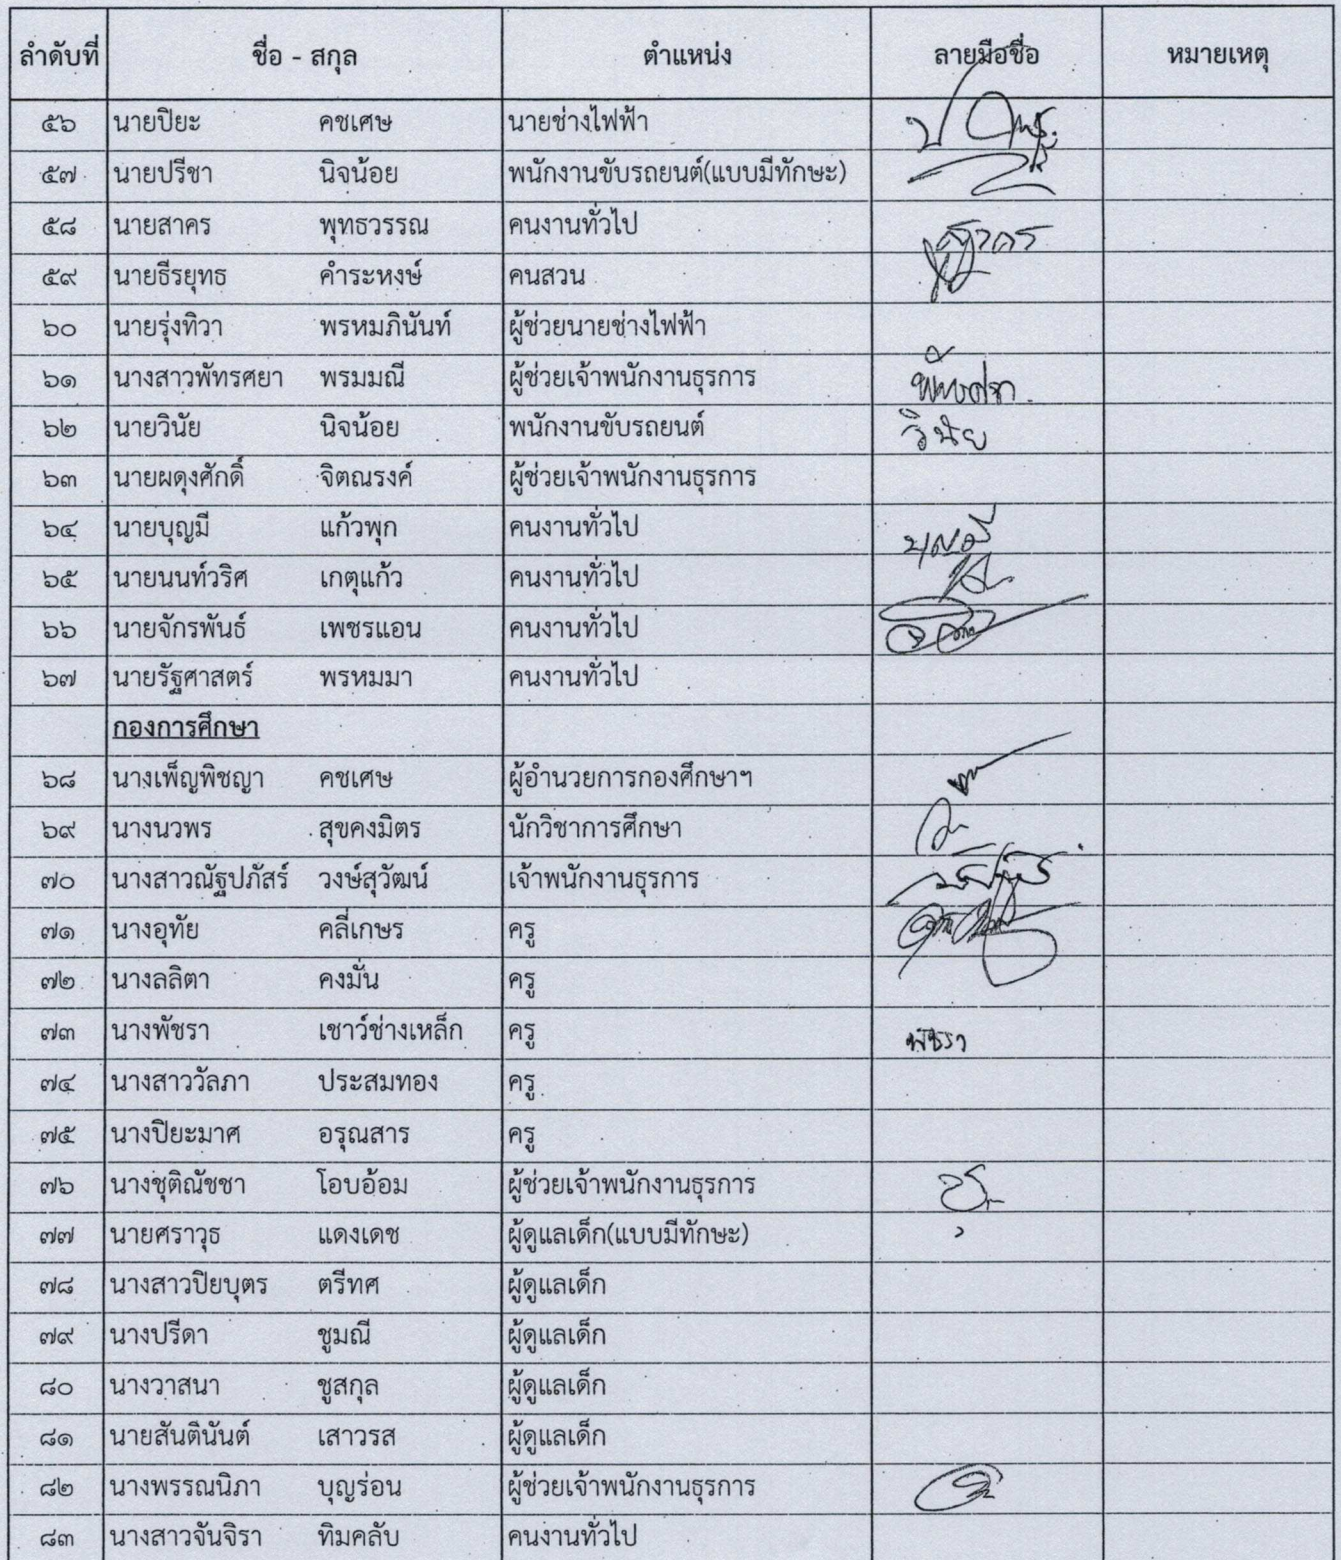 ลำดับที่ ชื่อ - สกุล ตำแหน่ง ลายมือชื่อ หมายเหตุ
๕๖ นายปิยะ คชเศษ นายช่างไฟฟ้า
๕๗ นายปรีชา นิจน้อย พนักงานขับรถยนต์(แบบมีทักษะ)
๕๘ นายสาคร พุทธวรรณ คนงานทั่วไป สาคร
๕๙ นายธีรยุทธ คำระหงษ์ คนสวน
๖๐ นายรุ่งทิวา พรหมภินันท์ ผู้ช่วยนายช่างไฟฟ้า
๖๑ นางสาวพัทรศยา พรมมณี ผู้ช่วยเจ้าพนักงานธุรการ
๖๒ นายวินัย นิจน้อย พนักงานขับรถยนต์ วินัย
๖๓ นายผดุงศักดิ์ จิตณรงค์ ผู้ช่วยเจ้าพนักงานธุรการ
๖๔ นายบุญมี แก้วพุก คนงานทั่วไป บุญมี
๖๕ นายนนท์วริศ เกตุแก้ว คนงานทั่วไป
๖๖ นายจักรพันธ์ เพชรแอน คนงานทั่วไป
๖๗ นายรัฐศาสตร์ พรหมมา คนงานทั่วไป
กองการศึกษา
๖๘ นางเพ็ญพิชญา คชเศษ ผู้อำนวยการกองศึกษาฯ
๖๙ นางนวพร สุขคงมิตร นักวิชาการศึกษา
๗๐ นางสาวณัฐปภัสร์ วงษ์สุวัฒน์ เจ้าพนักงานธุรการ
๗๑ นางอุทัย คลี่เกษร ครู
๗๒ นางลลิตา คงมั่น ครู
๗๓ นางพัชรา เชาว์ช่างเหล็ก ครู พัชรา
๗๔ นางสาววัลภา ประสมทอง ครู
๗๕ นางปิยะมาศ อรุณสาร ครู
๗๖ นางชุติณัชชา โอบอ้อม ผู้ช่วยเจ้าพนักงานธุรการ
๗๗ นายศราวุธ แดงเดช ผู้ดูแลเด็ก(แบบมีทักษะ)
๗๘ นางสาวปิยบุตร ตรีทศ ผู้ดูแลเด็ก
๗๙ นางปรีดา ชูมณี ผู้ดูแลเด็ก
๘๐ นางวาสนา ชูสกุล ผู้ดูแลเด็ก
๘๑ นายสันตินันต์ เสาวรส ผู้ดูแลเด็ก
๘๒ นางพรรณนิภา บุญร่อน ผู้ช่วยเจ้าพนักงานธุรการ
๘๓ นางสาวจันจิรา ทิมคลับ คนงานทั่วไป